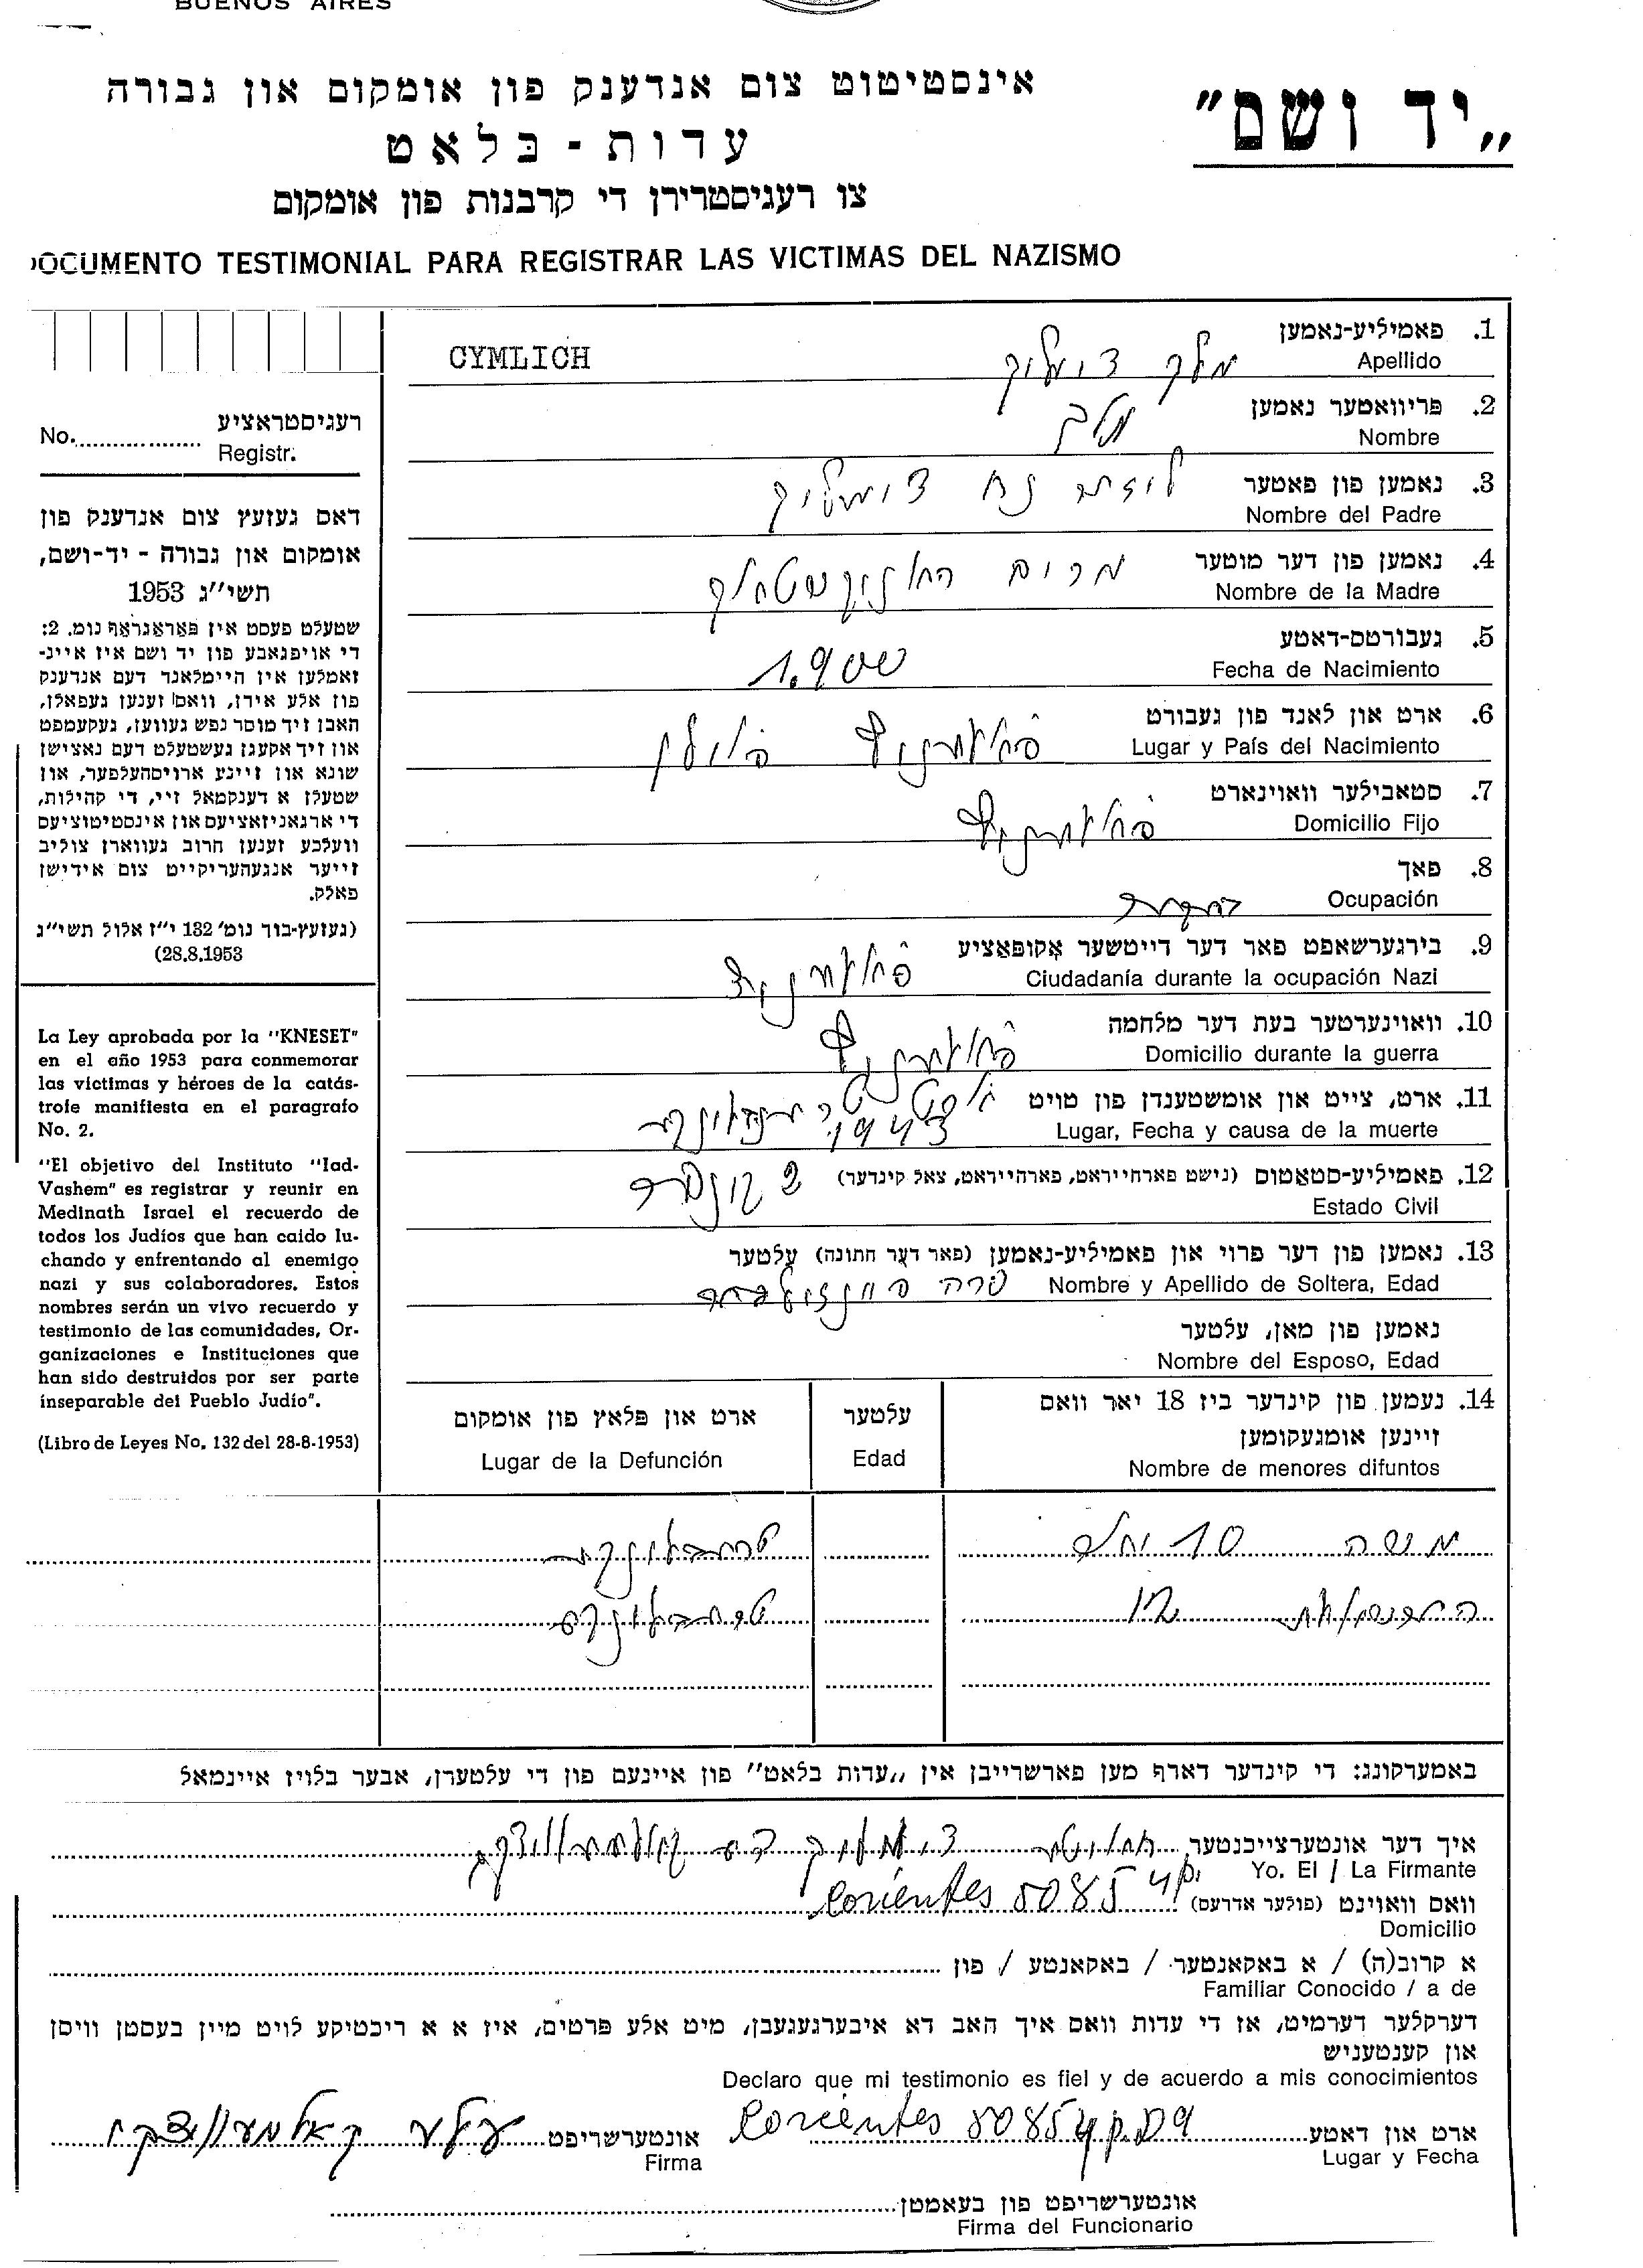 BUENOS AIRES
„יד ושם"
אינסטיטוט צום אנדענק פון אומקום און גבורה
עדות - בלאט
צו רעגיסטרירן די קרבנות פון אומקום
DOCUMENTO TESTIMONIAL PARA REGISTRAR LAS VICTIMAS DEL NAZISMO
1. פאמיליע-נאמען
Apellido
CYMLICH
מלך צימליך
2. פריוואטער נאמען
Nombre
מלך
3. נאמען פון פאטער
Nombre del Padre
נח צימליך
4. נאמען פון דער מוטער
Nombre de la Madre
מרים
5. געבורטס-דאטע
Fecha de Nacimiento
1.900
6. ארט און לאנד פון געבורט
Lugar y País del Nacimiento
פוילן
7. סטאבילער וואוינארט
Domicilio Fijo
8. פאך
Ocupación
9. בירגערשאפט פאר דער דייטשער אקופאציע
Ciudadanía durante la ocupación Nazi
10. וואוינערטער בעת דער מלחמה
Domicilio durante la guerra
11. ארט, צייט און אומשטענדן פון טויט
Lugar, Fecha y causa de la muerte
1943
12. פאמיליע-סטאטוס (נישט פארהייראט, פארהייראט, צאל קינדער)
Estado Civil
2 קינדער
13. נאמען פון דער פרוי און פאמיליע-נאמען (פאר דער חתונה) עלטער
Nombre y Apellido de Soltera, Edad
שרה
נאמען פון מאן, עלטער
Nombre del Esposo, Edad
14. נעמען פון קינדער ביז 18 יאר וואס
זיינען אומגעקומען
Nombre de menores difuntos
עלטער
Edad
ארט און פלאץ פון אומקום
Lugar de la Defunción
משה 10 יאר טרעבלינקע
12 טרעבלינקע
רעגיסטראציע
No. Registr.
דאס געזעץ צום אנדענק פון
אומקום און גבורה - יד-ושם,
תשי"ג 1953
שטעלט פעסט אין פאראגראף נומ. 2:
די אויפגאבע פון יד ושם איז איינ-
זאמלען אין היימלאנד דעם אנדענק
פון אלע אידן, וואס זענען געפאלן,
האבן זיך מוסר נפש געווען, געקעמפט
און זיך אקעגן געשטעלט דעם נאצישן
שונא און זיינע ארויסהעלפער, און
שטעלן א דענקמאל זיי, די קהילות,
די ארגאניזאציעס און אינסטיטוציעס
וועלכע זענען חרוב געווארן צוליב
זייער אנגעהעריקייט צום אידישן
פאלק.
(געזעץ-בוך נומ' 132 י"ז אלול תשי"ג
28.8.1953)
La Ley aprobada por la "KNESET"
en el año 1953 para conmemorar
las víctimas y héroes de la catás-
trofe manifiesta en el paragrafo
No. 2.
"El objetivo del Instituto "Iad-
Vashem" es registrar y reunir en
Medinath Israel el recuerdo de
todos los Judíos que han caído lu-
chando y enfrentando al enemigo
nazi y sus colaboradores. Estos
nombres serán un vivo recuerdo y
testimonio de las comunidades, Or-
ganizaciones e Instituciones que
han sido destruidos por ser parte
inseparable del Pueblo Judío".
(Libro de Leyes No. 132 del 28-8-1953)
באמערקונג: די קינדער דארף מען פארשרייבן אין „עדות בלאט" פון איינעם פון די עלטערן, אבער בלויז איינמאל
איך דער אונטערצייכנטער
Yo. El / La Firmante
וואס וואוינט (פולער אדרעס) Corientes 5085 4p.
Domicilio
א קרוב(ה) / א באקאנטער / באקאנטע / פון
Familiar Conocido / a de
דערקלער דערמיט, אז די עדות וואס איך האב דא איבערגעגעבן, מיט אלע פרטים, איז א א ריכטיקע לויט מיין בעסטן וויסן
און קענטעניש
Declaro que mi testimonio es fiel y de acuerdo a mis conocimientos
ארט און דאטע Corientes 5085 4p.
Lugar y Fecha
אונטערשריפט
Firma
אונטערשריפט פון בעאמטן
Firma del Funcionario